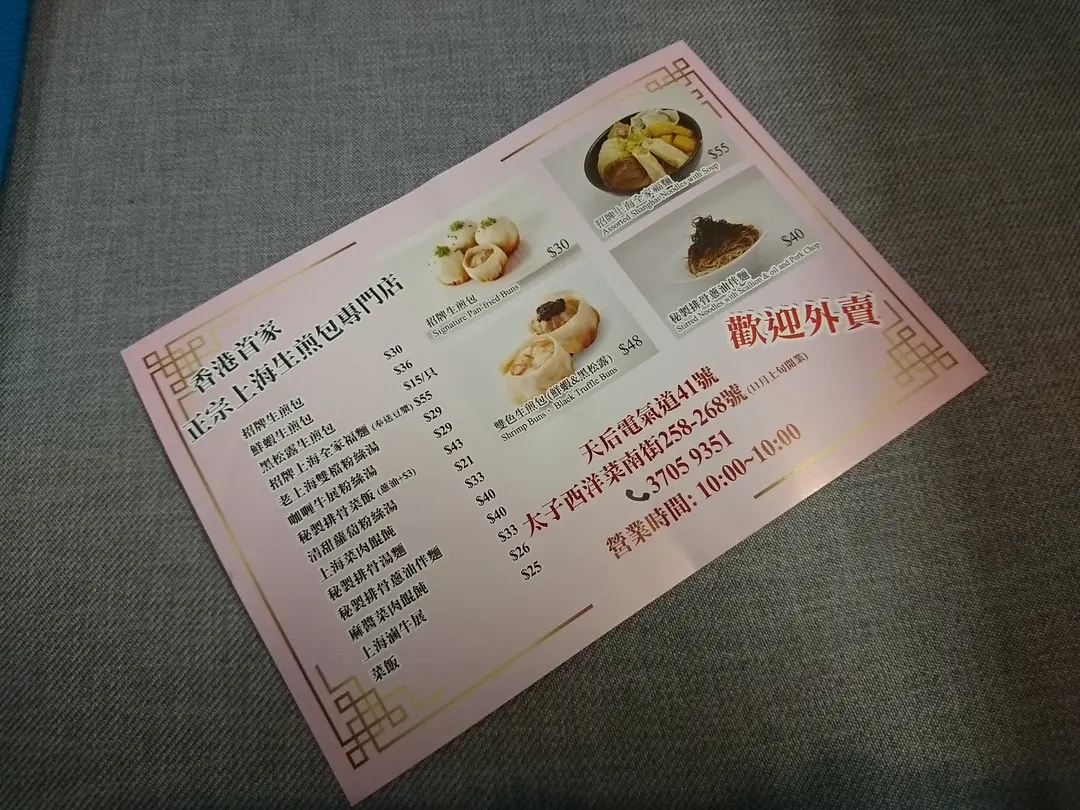 香港首家
正宗上海生煎包專門店
招牌生煎包 $30
鮮蝦生煎包 $36
黑松露生煎包 $15/只
招牌上海全家福麵 (奉送豆漿) $55
老上海雙檔粉絲湯 $29
咖喱牛展粉絲湯 $29
秘製排骨菜飯 (蔥油+$3) $43
清甜蘿蔔粉絲湯 $21
上海菜肉餛飩 $33
秘製排骨湯麵 $40
秘製排骨蔥油伴麵 $40
麻醬菜肉餛飩 $33
上海滷牛展 $26
菜飯 $25
$30
招牌生煎包
Signature Pan-fried Buns
$48
雙色生煎包(鮮蝦&黑松露)
Shrimp Buns、Black Truffle Buns
$55
招牌上海全家福麵
Assorted Shanghai Noodles with Soup
$40
秘製排骨蔥油伴麵
Stirred Noodles with Scallion & oil and Pork Chop
歡迎外賣
天后電氣道41號
太子西洋菜南街258-268號 (11月上旬開業)
3705 9351
營業時間: 10:00~10:00